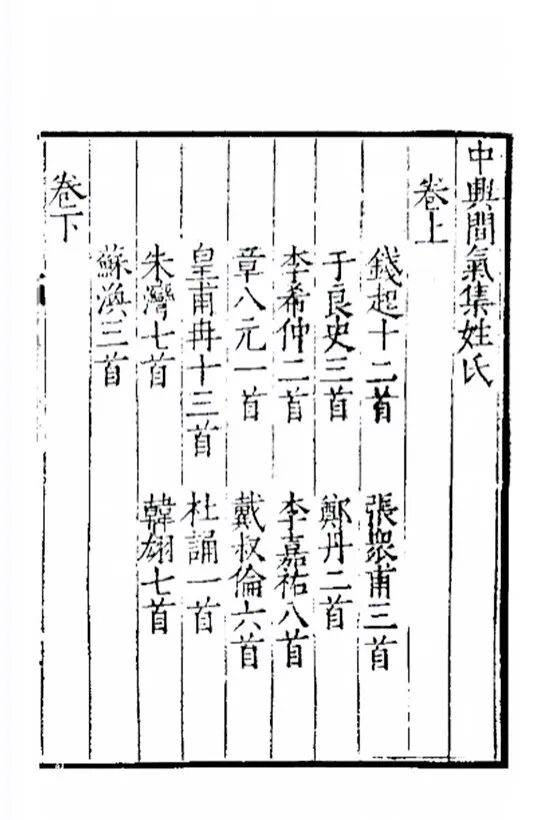 中興間氣集姓氏
卷上
錢起十二首 張衆甫三首
于良史三首 鄭丹二首
李希仲二首 李嘉祐八首
章八元一首 戴叔倫六首
皇甫冉十三首 杜誦一首
朱灣七首 韓翃七首
蘇渙三首
卷下